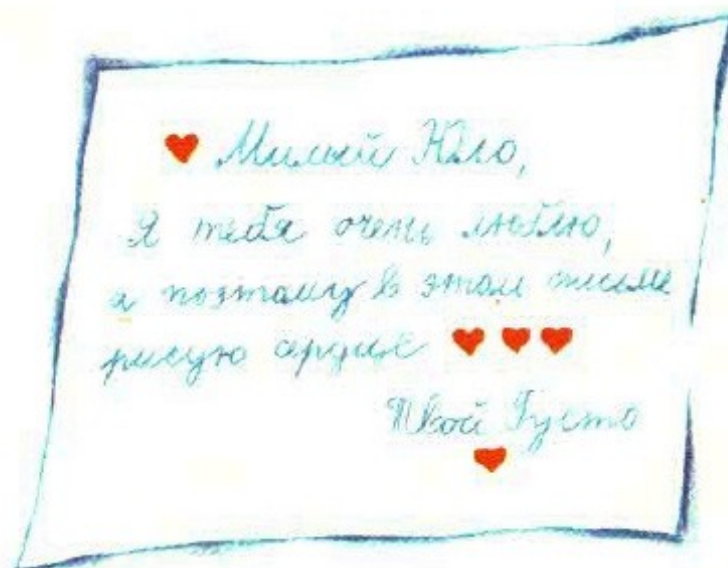 Милый Юло,
Я тебя очень люблю,
а поэтому в этом письме
рисую сердце
Твой Густо